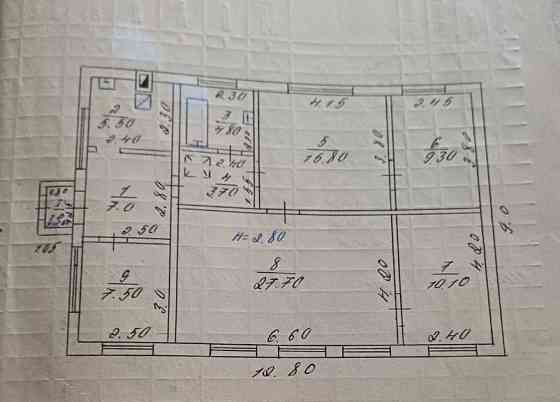 2
5.50
2.40
2.30
2.30
3
4.80
2.40
4
3.70
1.55
4.15
5
15.80
3.80
2.45
6
9.30
3.80
1
7.0
2.80
2.50
1.85
H=2.80
8
27.70
4.20
6.60
7
10.10
4.20
2.40
9
7.50
3.0
2.50
9.0
12.80